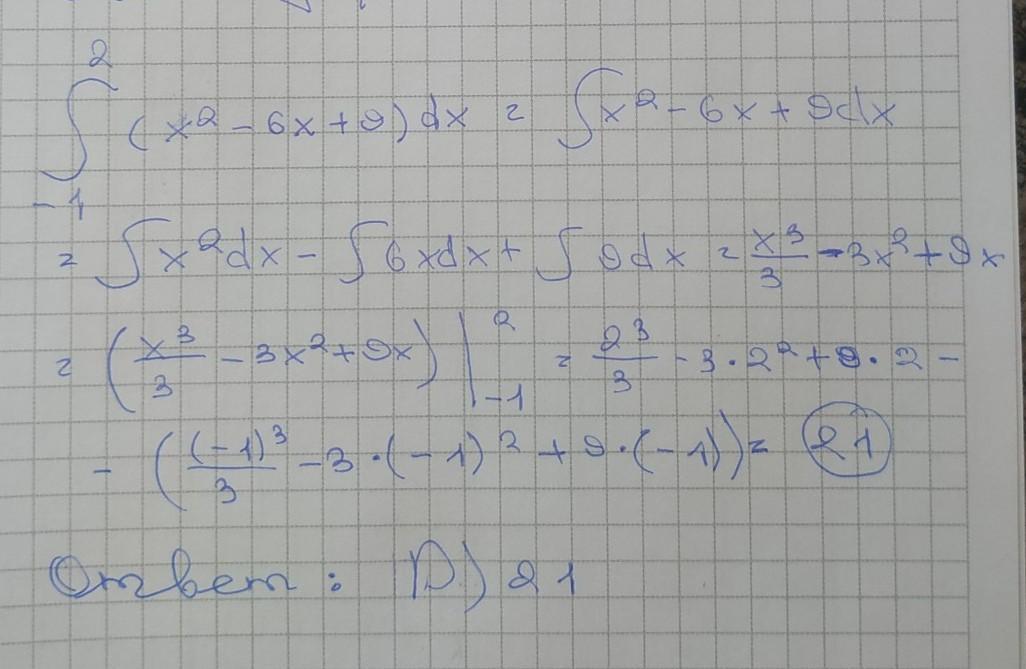 ∫₋₁² (x² - 6x + 9) dx = ∫x² - 6x + 9dx
= ∫x²dx - ∫6xdx + ∫9dx = x³/3 - 3x² + 9x
= (x³/3 - 3x² + 9x) |₋₁² = 2³/3 - 3·2² + 9·2 -
- ((-1)³/3 - 3·(-1)² + 9·(-1)) = 21
Ответ: D) 21